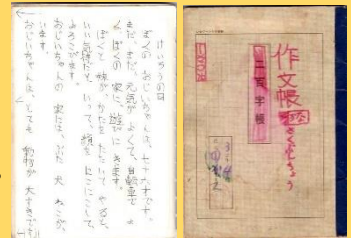 けいろうの日
ぼくのおじいちゃんは、七十六才です。
まだまだ、元気がよくて、自転車で
よくぼくの家に、遊びにきます。
ぼくと妹が、かたをたたいてやると、
いい気持だと、いって、顔をにこにこして、
よろこびます。
おじいちゃんの家には、ぶた、犬、ねこが、
います。
おじいちゃんは、とても、動物が大すきです。
作文帳
さくぶんちょう
二百字帳